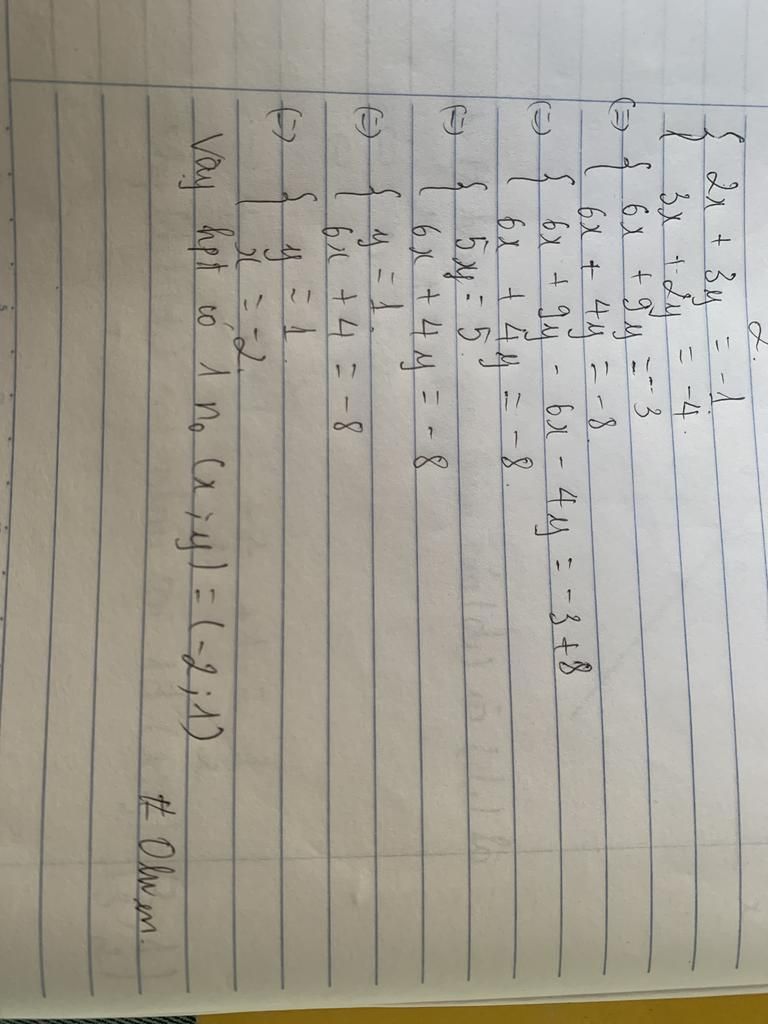 2.
{ 2x + 3y = -1.
3x + 2y = -4.
(=) { 6x + 9y = -3
6x + 4y = -8.
(=) { 6x + 9y - 6x - 4y = -3+8
6x + 4y = -8.
(=) { 5xy = 5.
6x + 4y = -8
(=) { y = 1.
6x + 4 = -8
(=) { y = 1.
x = -2.
Vậy hpt có 1 no (x;y) = (-2;1)